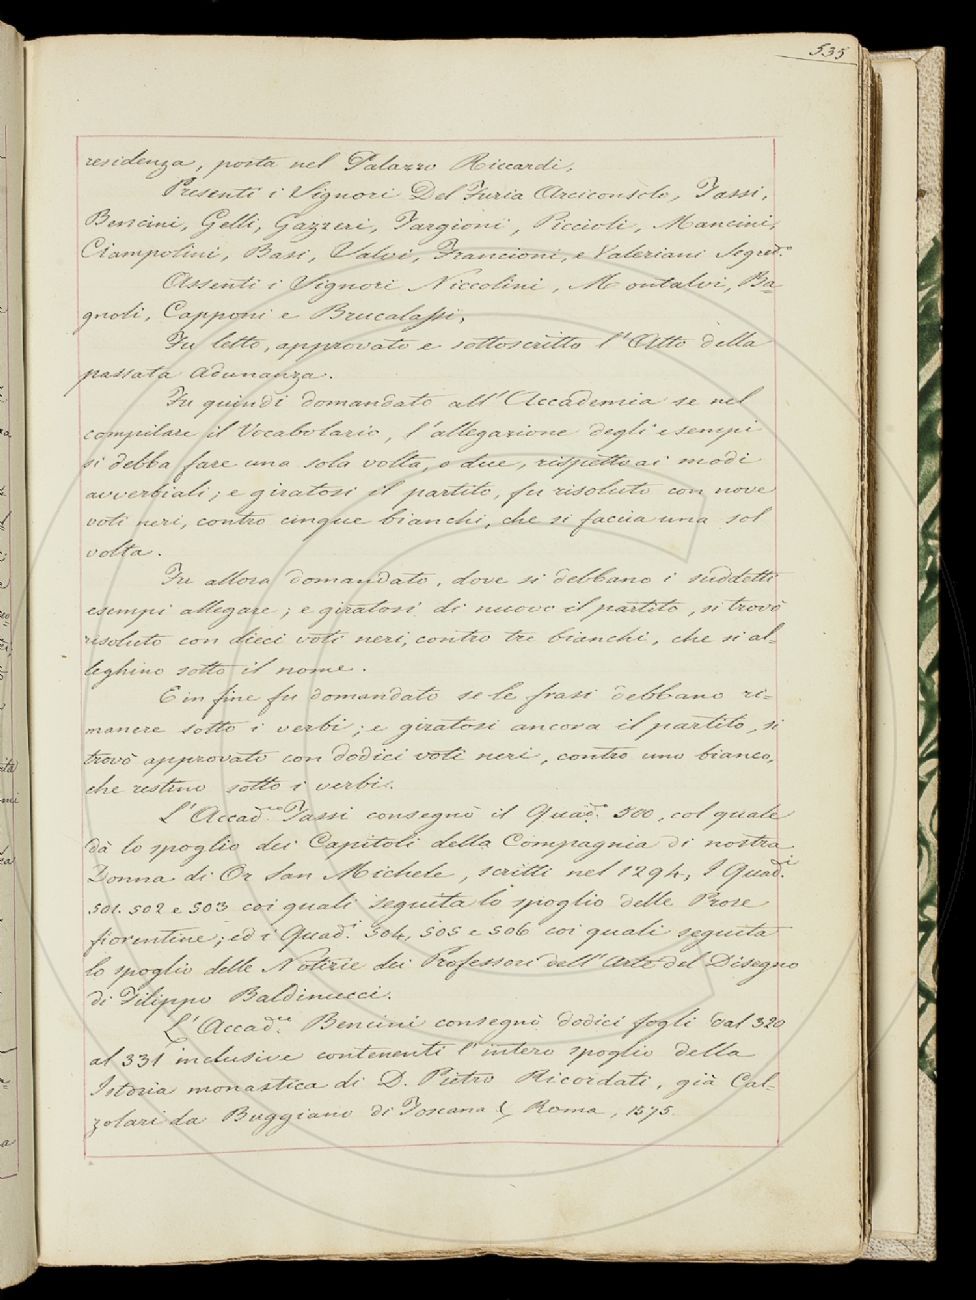 535
residenza, posta nel Palazzo Riccardi.
Presenti i Signori Del Furia Arciconsolo, Tassi,
Bencini, Gelli, Gazzeri, Targioni, Piccioli, Mancini,
Ciampolini, Basi, Salvi, Francioni, e Valeriani Segret.o
Assenti i Signori Niccolini, Montalvi, Ba=
gnoli, Capponi e Brucalassi,
Fu letto, approvato e sottoscritto l'Atto della
passata Adunanza.
Fu quindi domandato all'Accademia se nel
compilare il Vocabolario, l'allegazione degli esempi
si debba fare una sola volta, o due, rispetto ai modi
avverbiali; e giratosi il partito, fu risoluto con nove
voti neri, contro cinque bianchi, che si faccia una sol
volta.
Fu allora domandato, dove si debbano i suddetti
esempi allegare; e giratosi di nuovo il partito, si trovò
risoluto con dieci voti neri, contro tre bianchi, che si al=
leghino sotto il nome.
E in fine fu domandato se le frasi debbano ri=
manere sotto i verbi; e giratosi ancora il partito, si
trovò approvato con dodici voti neri, contro uno bianco,
che restino sotto i verbi.
L'Accad.co Tassi consegnò il Quad.o 500, col quale
dà lo spoglio dei Capitoli della Compagnia di nostra
Donna di Or San Michele, scritti nel 1294, I Quad.i
501. 502 e 503 coi quali seguita lo spoglio delle Prose
fiorentine; ed i Quad.i 504, 505 e 506 coi quali seguita
lo spoglio delle Notizie dei Professori dell'Arte del Disegno
di Filippo Baldinucci.
L'Accad.co Bencini consegnò dodici fogli dal 320
al 331 inclusive contenenti l'intero spoglio della
Istoria monastica di D. Pietro Ricordati, già Cal=
zolari da Buggiano di Toscana Roma, 1575.